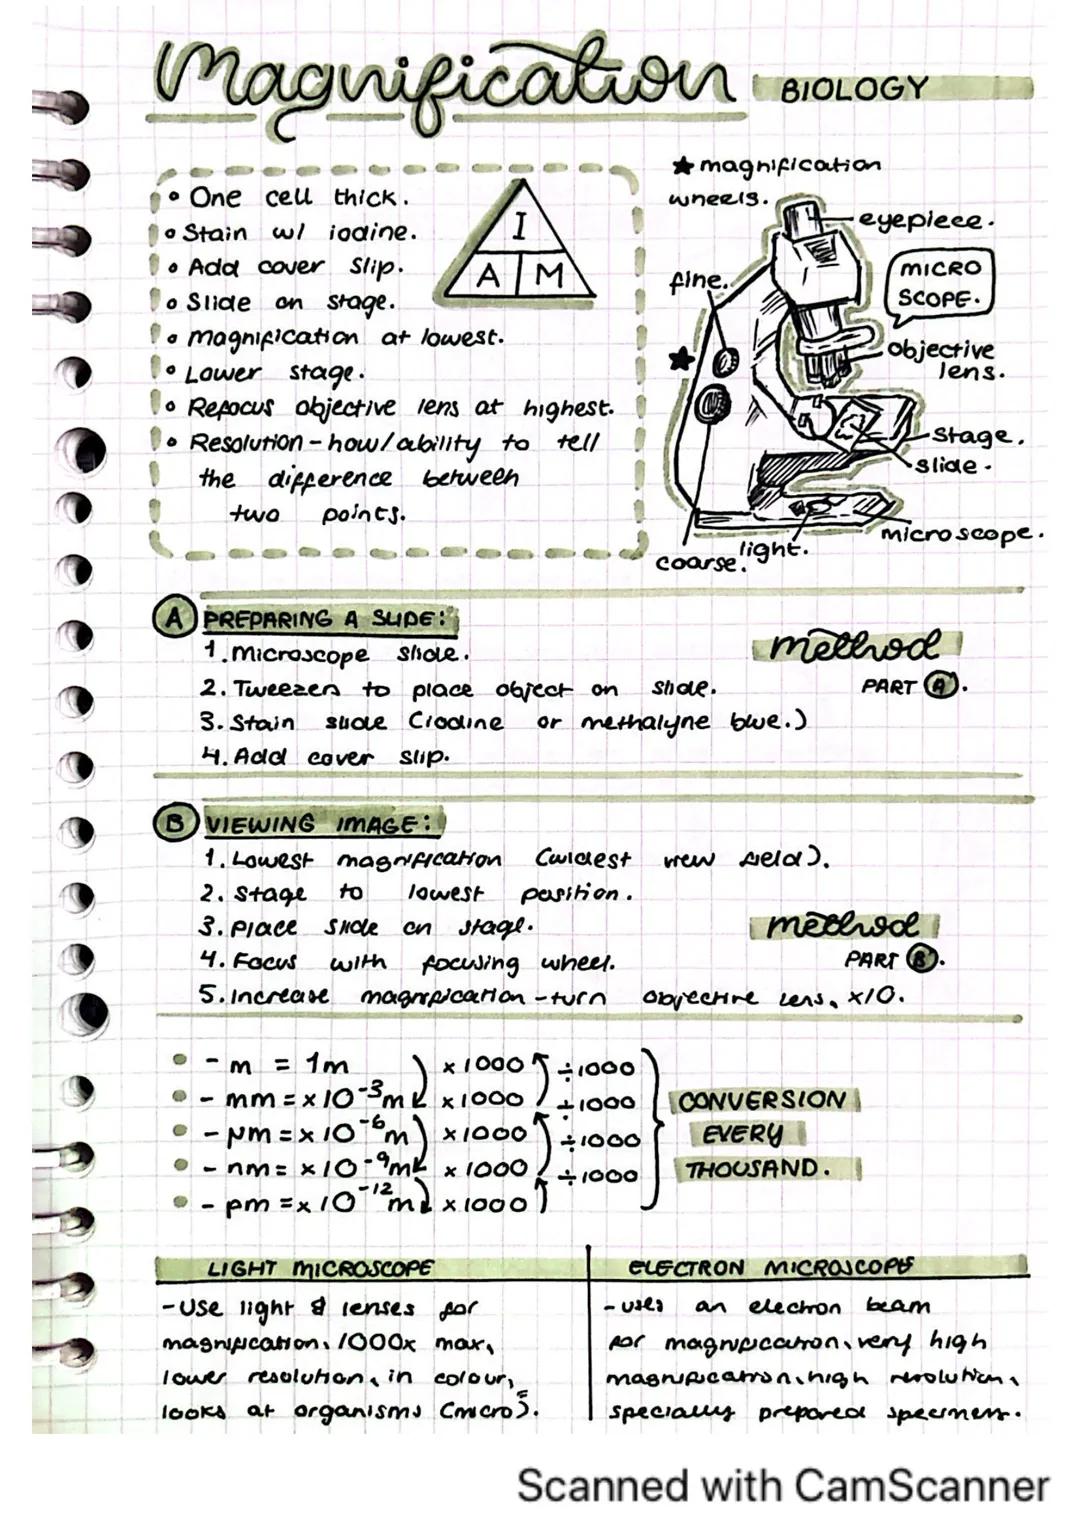 Magnification BIOLOGY
• One cell thick.
• Stain w/ iodine.
• Add cover slip.
• Slide on stage.
• magnification at lowest.
• Lower stage.
• Refocus objective lens at highest.
• Resolution - how/ability to tell
the difference between
two points.
I
A M
★ magnification
wheels.
eyepiece.
fine.
MICRO
SCOPE.
★
objective
lens.
stage.
slide.
microscope.
light.
coarse.
A PREPARING A SLIDE:
1. Microscope slide.
2. Tweezers to place object on slide.
3. Stain slide (iodine or methalyne blue.)
4. Add cover slip.
method
PART A.
B VIEWING IMAGE:
1. Lowest magnification (widest view field).
2. Stage to lowest position.
3. Place slide on stage.
4. Focus with focusing wheel.
5. Increase magnification - turn objective lens, x10.
method
PART B.
• - m = 1m x1000 ÷1000
• - mm = x10-³m x1000 ÷1000
• - µm = x10-⁶m x1000 ÷1000
• - nm = x10-⁹m x1000 ÷1000
• - pm = x10-¹²m x1000
CONVERSION
EVERY
THOUSAND.
LIGHT MICROSCOPE
- Use light & lenses for
magnification, 1000x max,
lower resolution, in colour,
looks at organisms (micro).
ELECTRON MICROSCOPE
- uses an electron beam
for magnification, very high
magnification, high resolution,
specially prepared specimens.
Scanned with CamScanner